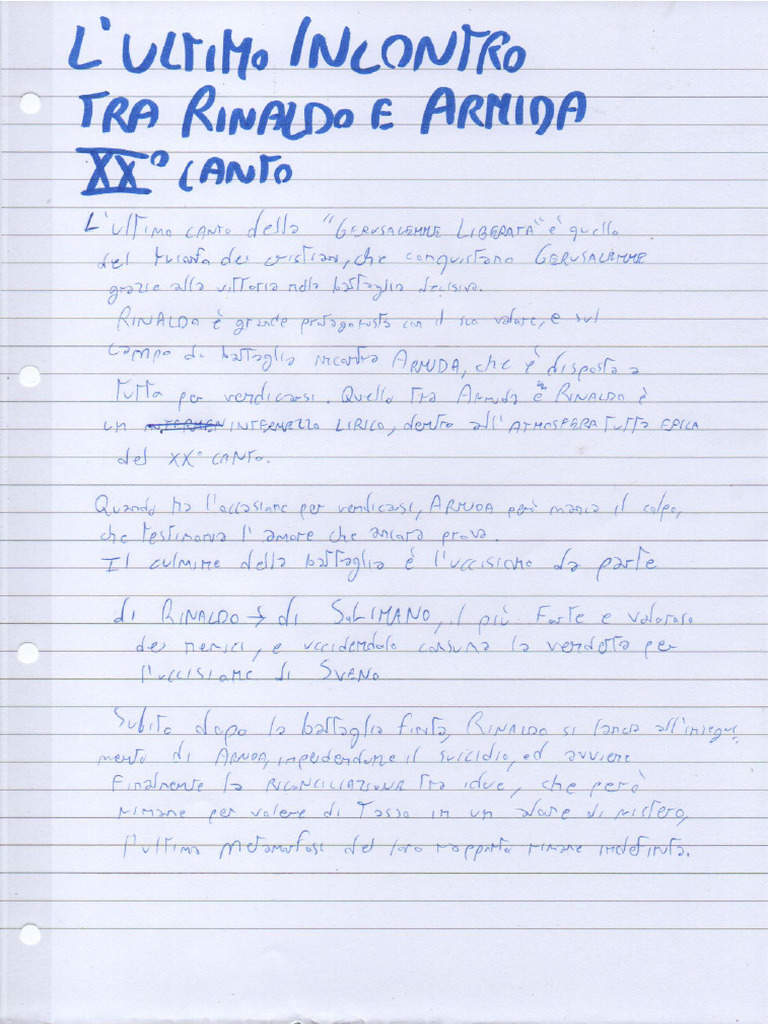 L'ULTIMO INCONTRO
TRA RINALDO E ARMIDA
XX° CANTO
L'ultimo canto della "GERUSALEMME LIBERATA" è quello
del trionfo dei cristiani, che conquistano GERUSALEMME
grazie alla vittoria nella battaglia decisiva.
RINALDO è grande protagonista con il suo valore, e sul
campo di battaglia incontra ARMIDA, che è disposta a
tutto per vendicarsi. Quello tra Armida e RINALDO è
un INTERMEZZO LIRICO, dentro all'ATMOSFERA TUTTA EPICA
del XX° CANTO.
Quando ha l'occasione per vendicarsi, ARMIDA però manca il colpo,
che testimonia l'amore che ancora prova.
Il culmine della battaglia è l'uccisione da parte
di RINALDO → di SOLIMANO, il più forte e valoroso
dei nemici, e uccidendolo consuma la vendetta per
l'uccisione di SVENO
Subito dopo la battaglia finita, RINALDO si lancia all'insegui
mento di ARMIDA, impedendone il suicidio, ed avviene
finalmente la RICONCILIAZIONE tra i due, che però
rimane per volere di Tasso in un alone di mistero,
l'ultima metamorfosi del loro rapporto rimane indefinita.